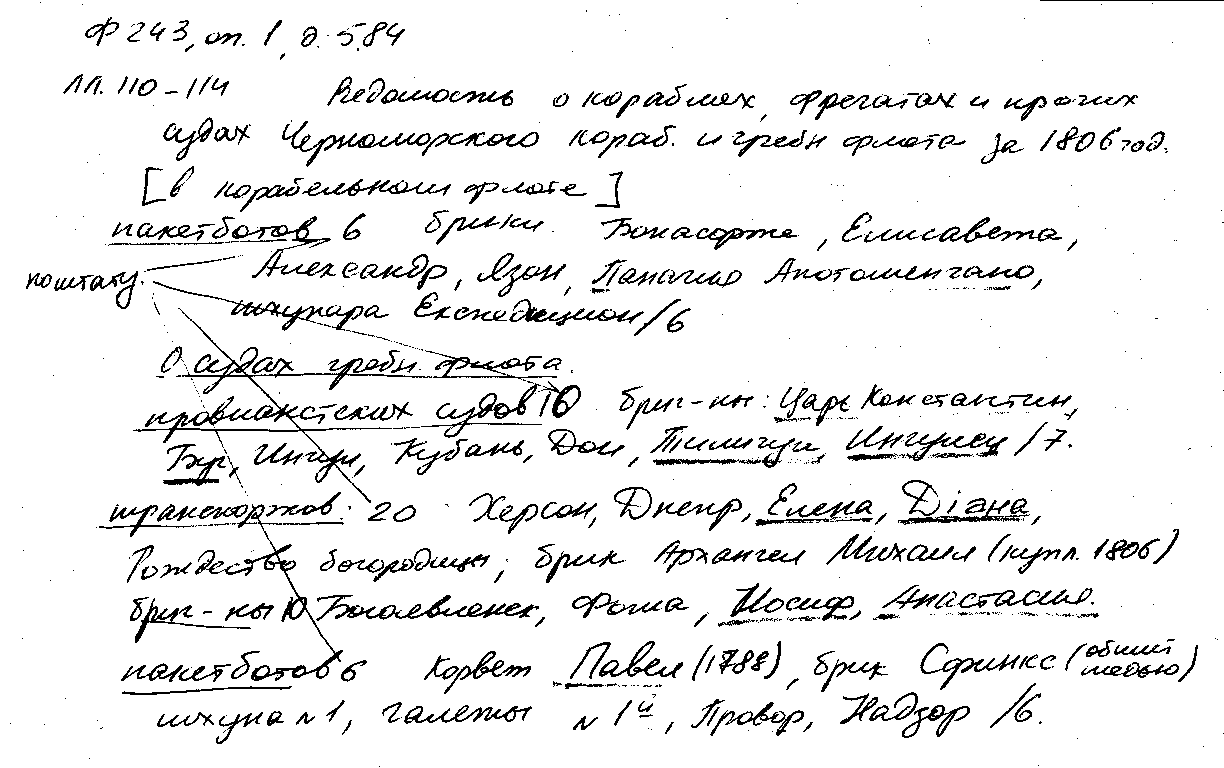 Ф 243, оп. 1, д. 584
лл. 110-114 Ведомость о кораблях, фрегатах и прочих
судах Черноморского кораб. и гребн флота за 1806 год.
[в корабельном флоте]
пакетботов 6 брики Бонасорте, Елисавета,
по штату. Александр, Язон, Панагия Апотоменгано,
шхунара Експедицион/6
О судах гребн. флота
провиантских судов 10 бриг-ны: Царь Константин,
Буг, Ингул, Кубань, Дон, Тилигул, Ингулец /7.
транспортов: 20 Херсон, Днепр, Елена, Дiана,
Рождество богородицы, брик Архангел Михаил (купл. 1806)
бриг-ны 10 Богоявленск, Фома, Иосиф, Анастасия.
пакетботов 6 корвет Павел (1788), брик Сфинкс (обшит медью)
шхуна №1, галеты №1й, Провор, Надзор /6.